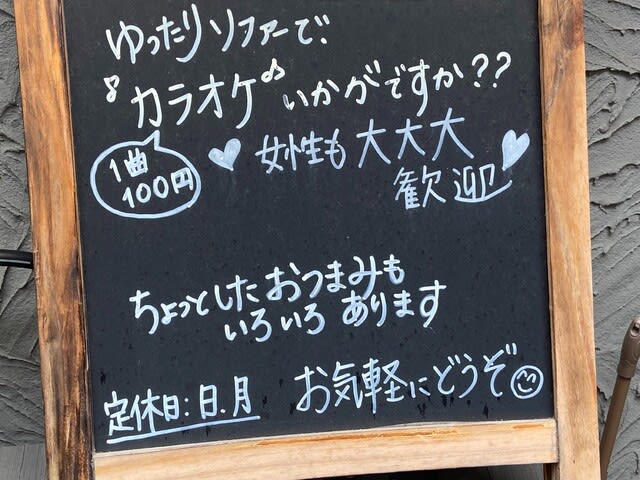 ゆったりソファーで
♪カラオケ♪いかがですか??
1曲
100円
♡女性も大大大♡
歓迎
ちょっとしたおつまみも
いろいろあります
お気軽にどうぞ
定休日:日.月